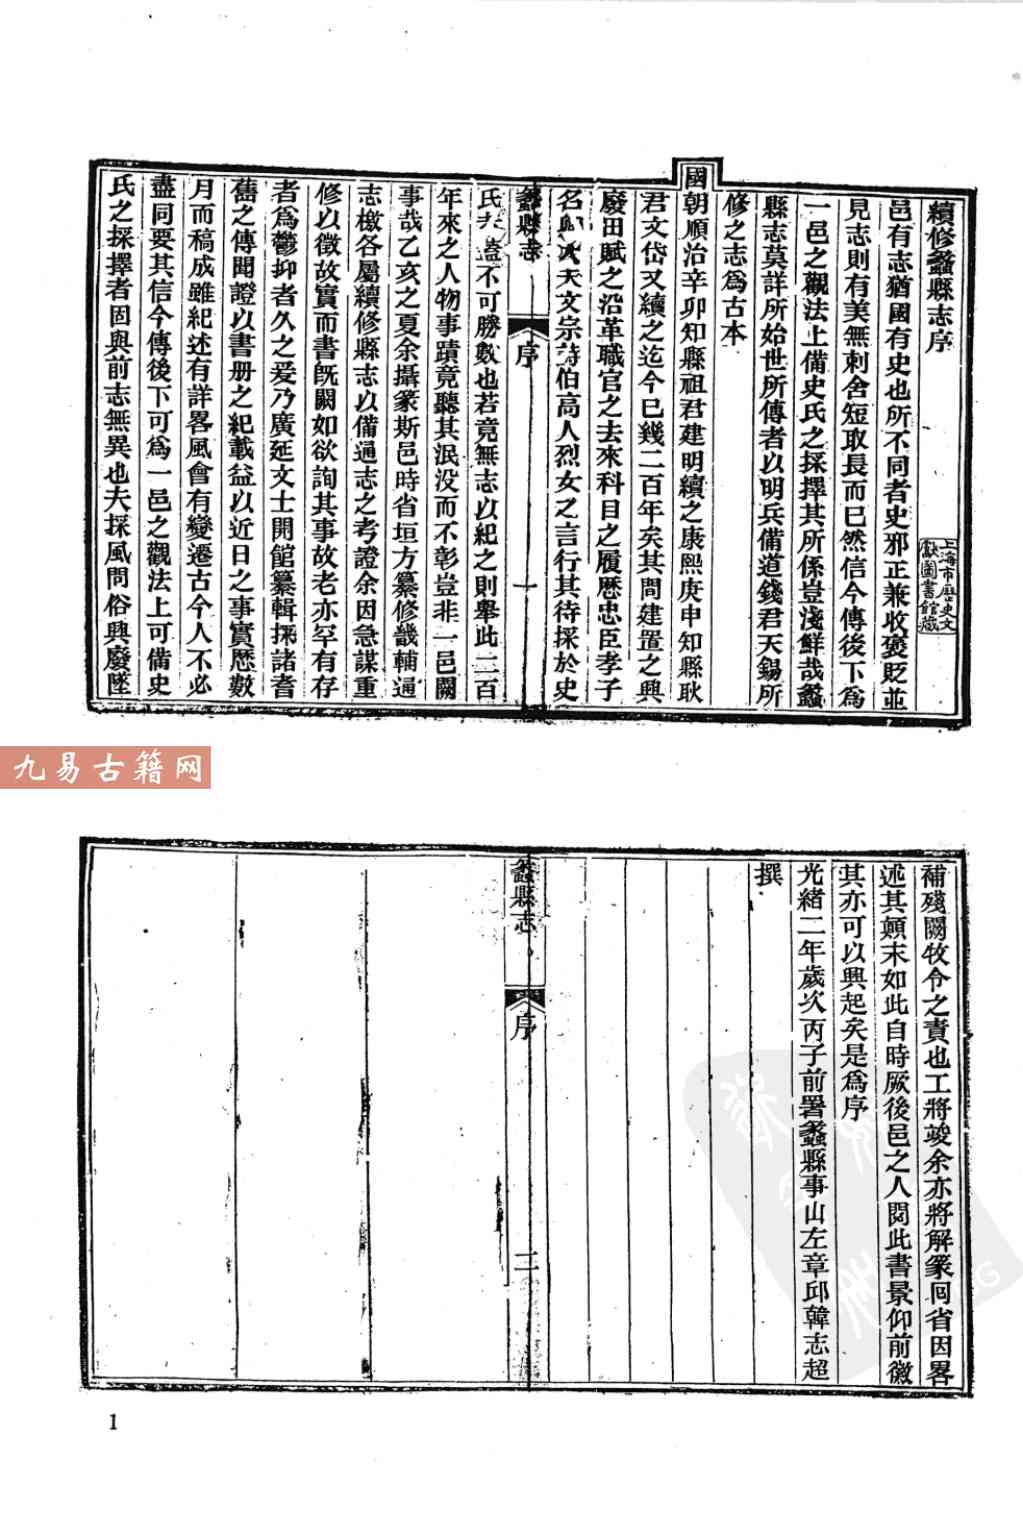 續修蠡縣志序
上海市歷史文
獻圖書館藏
邑有志猶國有史也所不同者史邪正兼收褒貶並
見志則有美無刺舍短取長而已然信今傳後下爲
一邑之觀法上備史氏之採擇其所係豈淺鮮哉蠡
縣志莫詳所始世所傳者以明兵備道錢君天錫所
修之志爲古本
國朝順治辛卯知縣祖君建明續之康熙庚申知縣耿
君文岱又續之迄今已幾二百年矣其間建置之興
廢田賦之沿革職官之去來科目之履歷忠臣孝子
名天文宗詩伯高人烈女之言行其待採於史
蠡縣志
序
一
氏蓋不可勝數也若竟無志以紀之則舉此二百
年來之人物事蹟竟聽其泯没而不彰豈非一邑闕
事哉乙亥之夏余攝篆斯邑時省垣方纂修畿輔通
志檄各屬續修縣志以備通志之考證余因急謀重
修以徵故實而書旣闕如欲詢其事故老亦罕有存
者爲鬱抑者久之爰乃廣延文士開館纂輯採諸耆
舊之傳聞證以書册之紀載益以近日之事實歷數
月而稿成雖紀述有詳畧風會有變遷古今人不必
盡同要其信今傳後下可爲一邑之觀法上可備史
氏之採擇者固與前志無異也夫採風問俗興廢墜
九易古籍网
補殘闕牧令之責也工將竣余亦將解篆囘省因畧
述其顛末如此自時厥後邑之人閱此書景仰前徽
其亦可以興起矣是爲序
光緒二年歲次丙子前署蠡縣事山左章邱韓志超
撰
蠡縣志
序
二
1